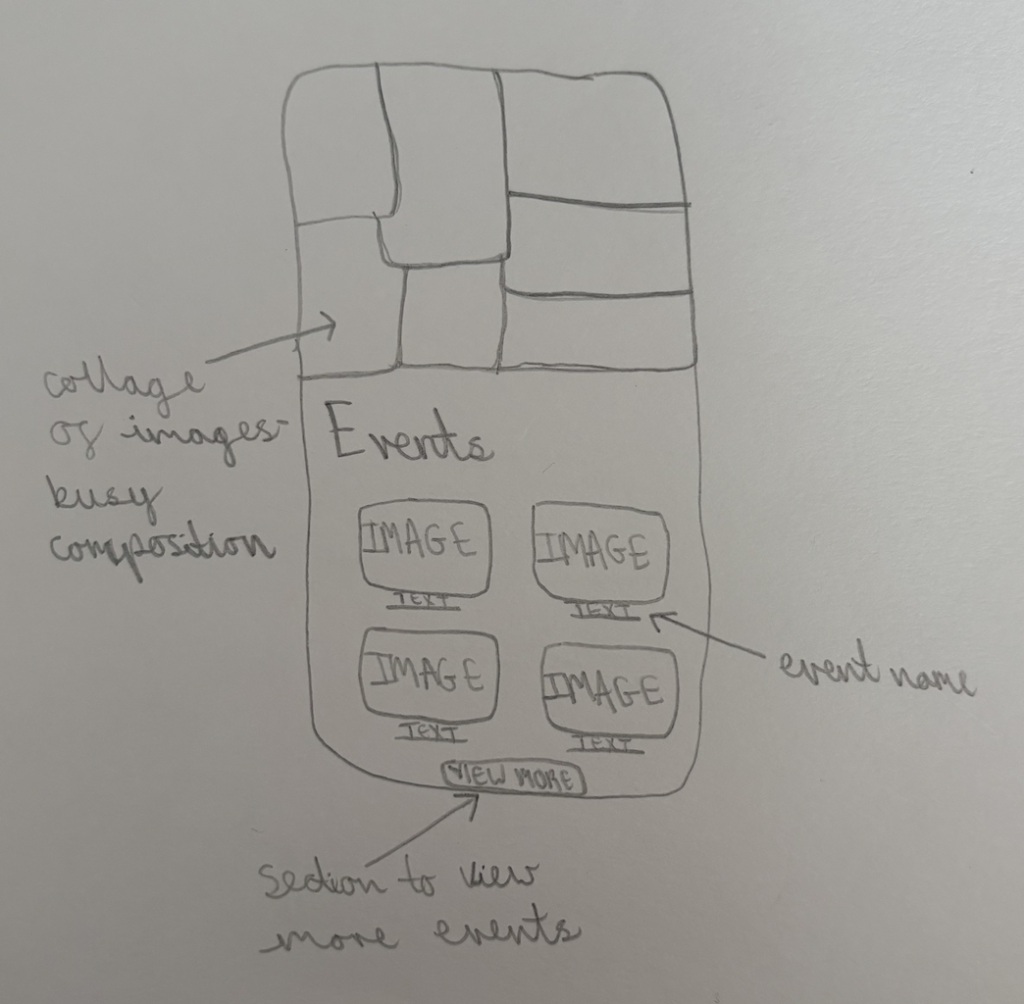 collage
of images-
busy
composition
Events
IMAGE
IMAGE
TEXT
TEXT
IMAGE
IMAGE
TEXT
TEXT
event name
VIEW MORE
section to view
more events